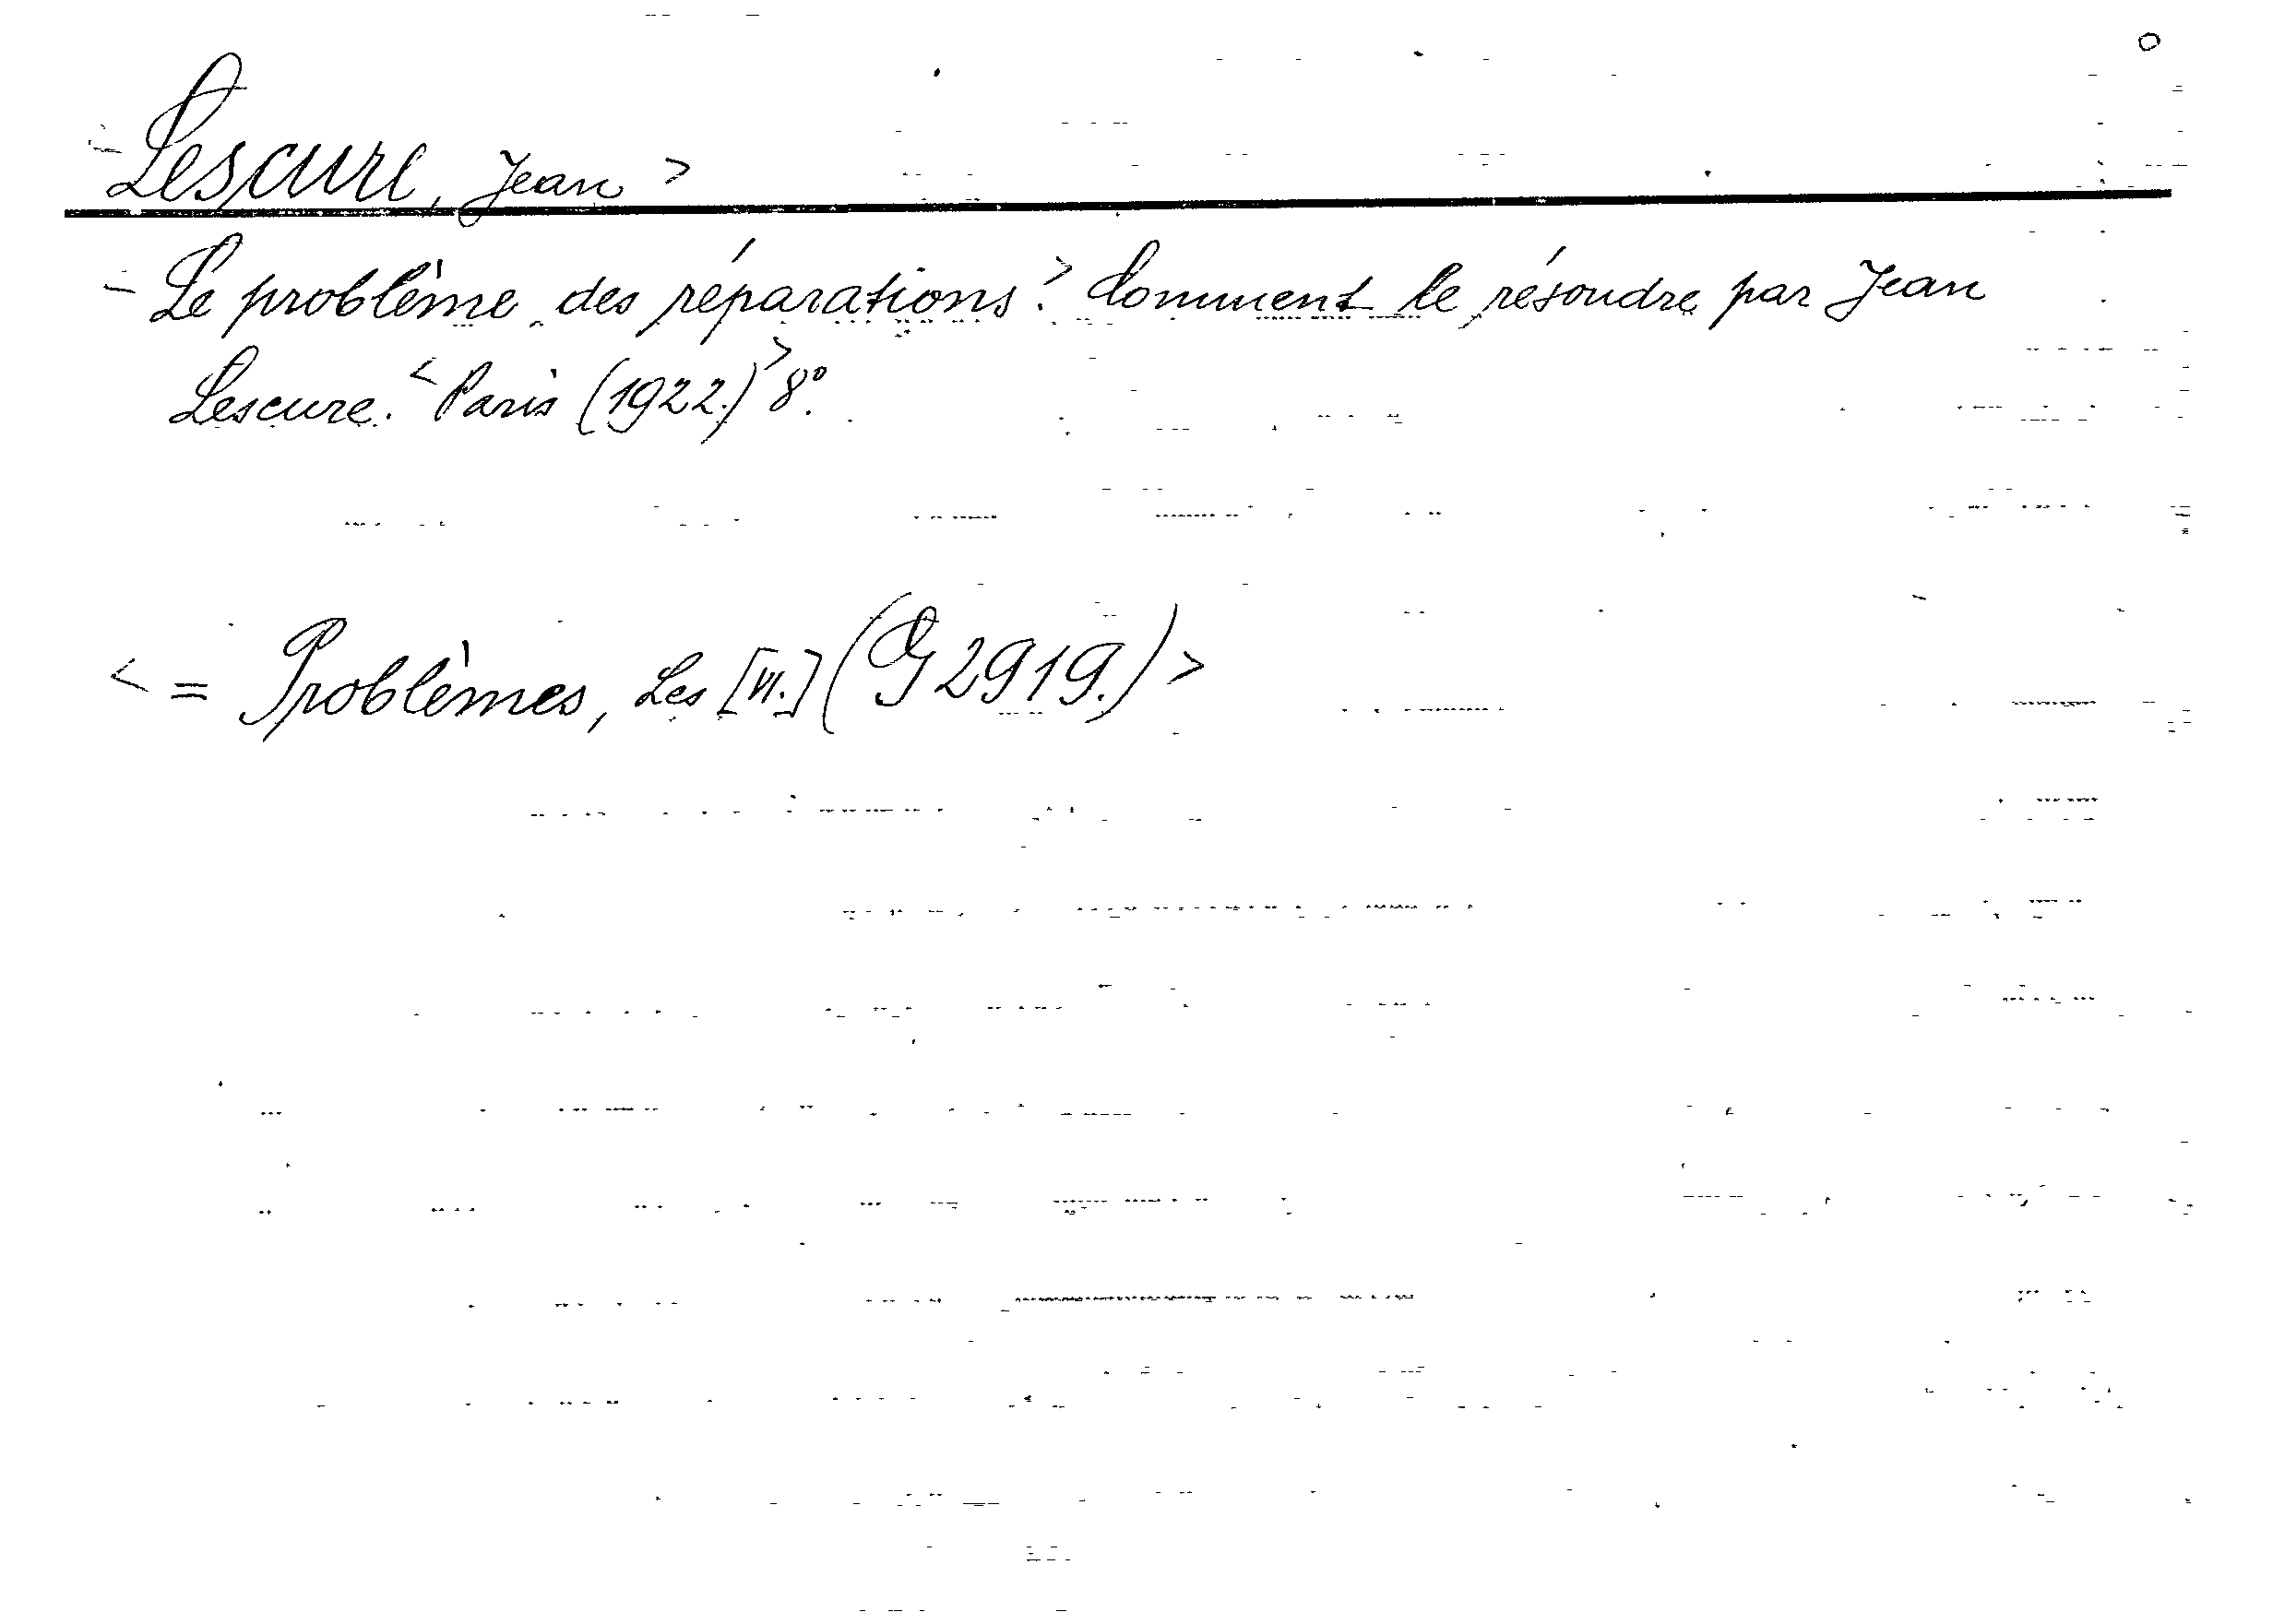 <Lescure, Jean>
<Le problème des réparations.> Comment le résoudre par Jean
Lescure. <Paris (1922.)> 8°.
<= Problèmes, Les [VI.] (G 2919.)>